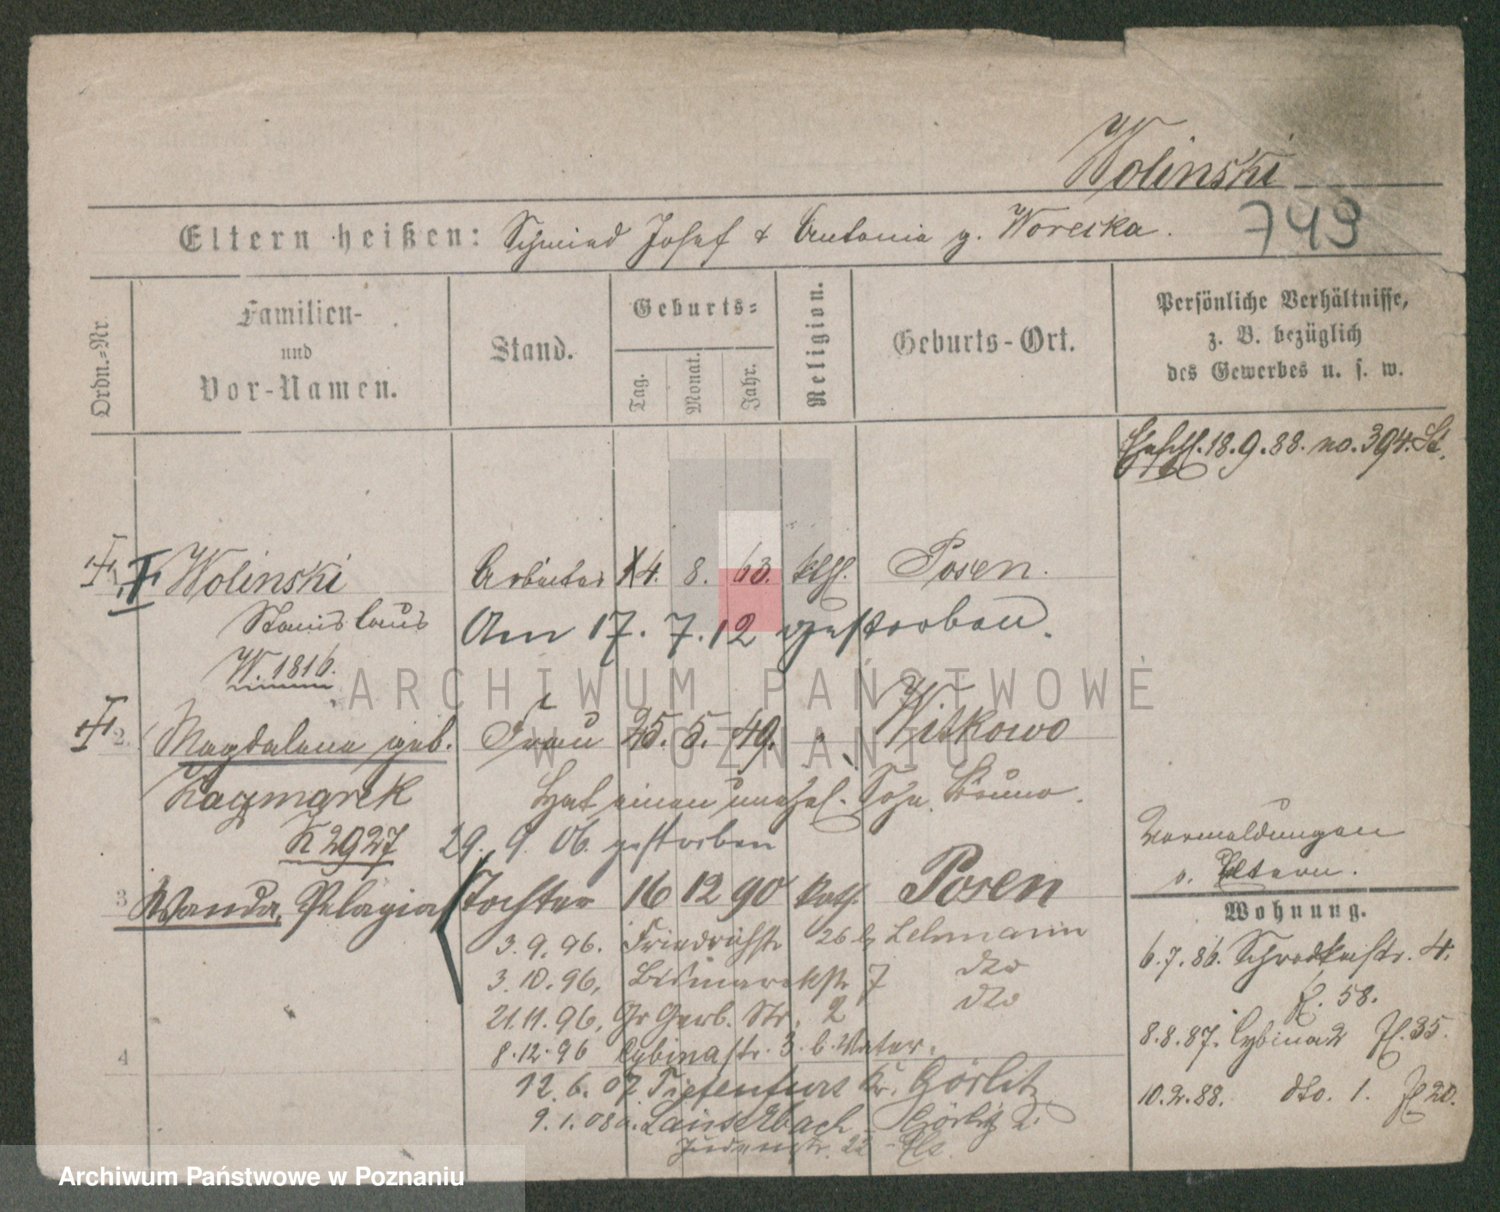 Wolinski
749
Eltern heißen: Schmied Josef & Antonia g. Woreska.
Ordn.-Nr.
Familien- und Vor-Namen.
Stand.
Geburts-
Tag. Monat. Jahr.
Religion.
Geburts-Ort.
Persönliche Verhältnisse,
z. B. bezüglich
des Gewerbes u. s. w.
18.9.88. no. 394. St.
Wolinski Arbeiter 14. 8. 63. kth. Posen.
Stanislaus Am 17. 7. 12 gestorben.
W. 1816.
2. Magdalena geb. Frau 25. 5. 49. " Witkowo
Kaczmarek Hat einen unehel. Sohn Bruno.
K 2927 29. 9. 06. gestorben
3 Wanda, Pelagia Tochter 16 12 90 kath. Posen
3.9.96. Friedrichstr 26 b/ Lehmann
3.10.96, Bismarckstr 7 dto
21.11.96, Gr Gerb. Str. 2 dto
4
8.12.96 Cybinastr. 3. b. Vater.
12. 6. 07. Tiefenfurt Kr. Görlitz
9. 1. 08 Görlitz
Judenstr. 22
Vermeldungen
v. Eltern.
Wohnung.
6.7.86. Schrodkastr. 4.
f. 58.
8.8.87. Cybina 2 fl. 35.
10.2.88. dto. 1. fl 20.
ARCHIWUM PAŃSTWOWE
W POZNANIU
Archiwum Państwowe w Poznaniu